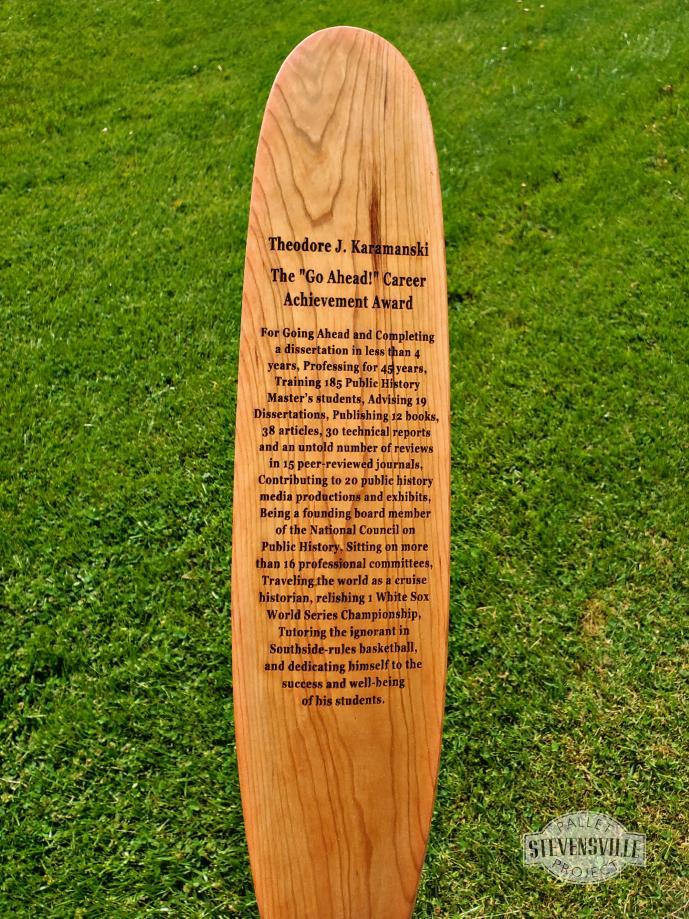 Theodore J. Karamanski
The "Go Ahead!" Career
Achievement Award
For Going Ahead and Completing
a dissertation in less than 4
years, Professing for 45 years,
Training 185 Public History
Master's students, Advising 19
Dissertations, Publishing 12 books,
38 articles, 30 technical reports
and an untold number of reviews
in 15 peer-reviewed journals,
Contributing to 20 public history
media productions and exhibits,
Being a founding board member
of the National Council on
Public History, Sitting on more
than 16 professional committees,
Traveling the world as a cruise
historian, relishing 1 White Sox
World Series Championship,
Tutoring the ignorant in
Southside-rules basketball,
and dedicating himself to the
success and well-being
of his students.
PALLET
STEVENSVILLE
PROJECT